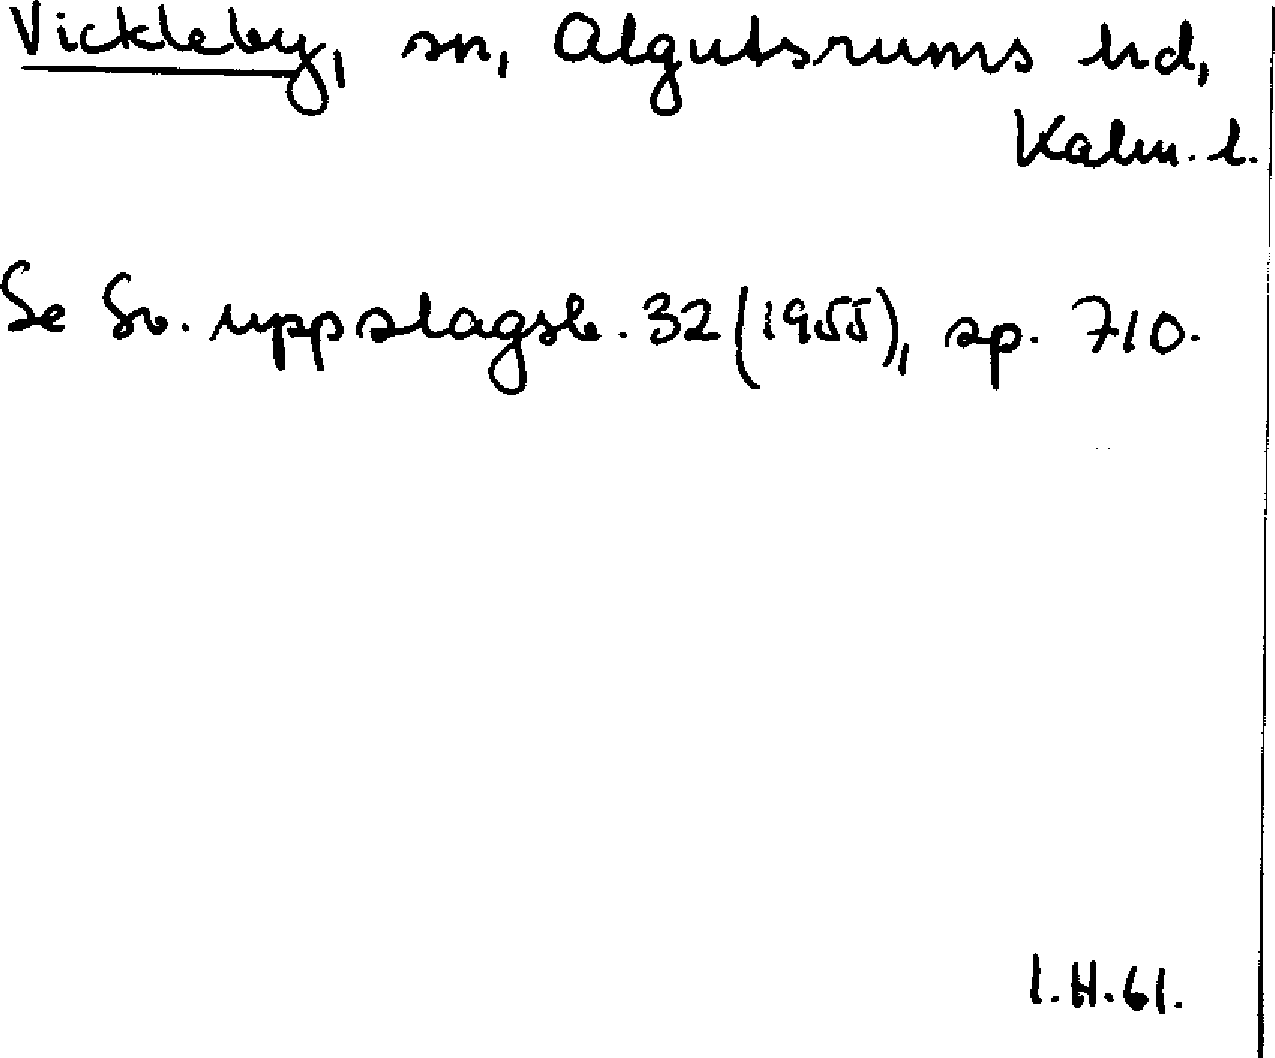 Vickleby, sn, Algutsrums hd,
Kalm. l.
Se Sv. uppslagsb. 32 (1955), sp. 710.
I.H.61.